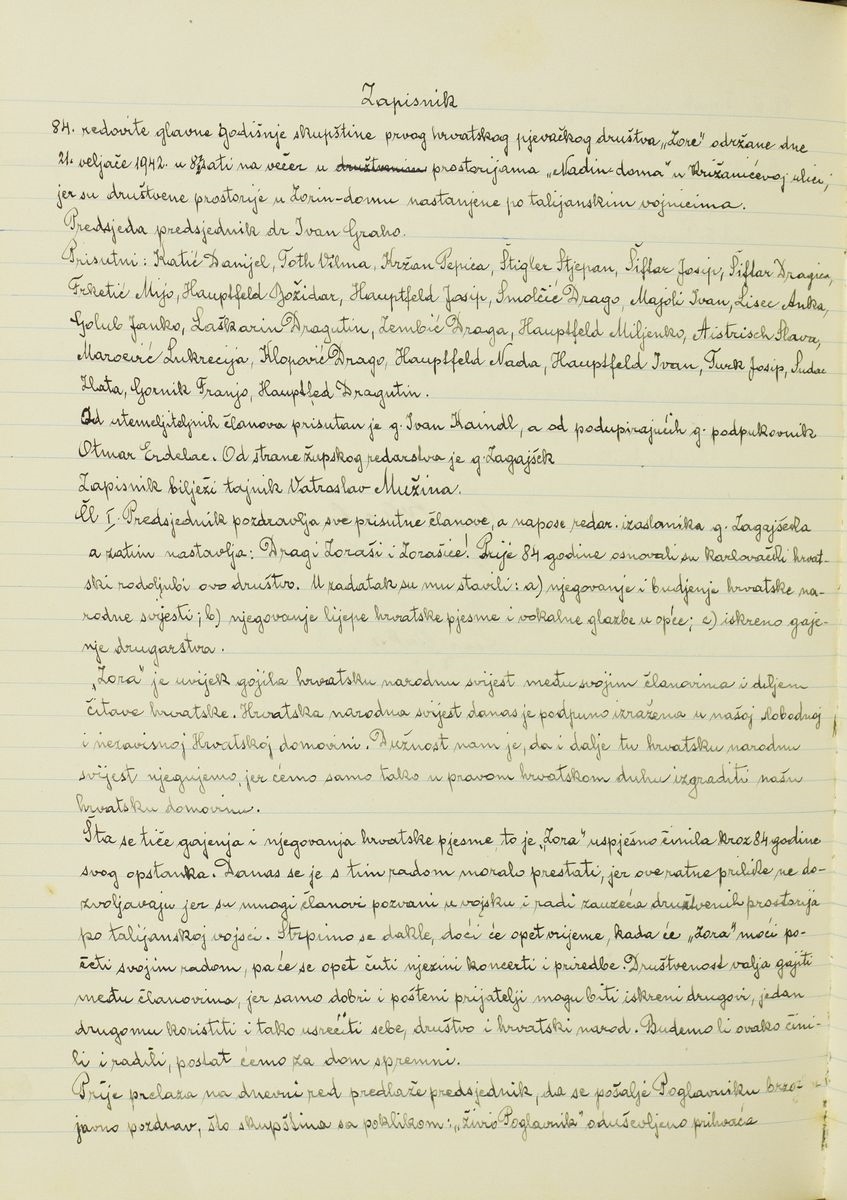 Zapisnik
84. redovite glavne godišnje skupštine prvog hrvatskog pjevačkog društva „Zore" održane dne
21. veljače 1942. u 8 sati na večer u društvenim prostorijama „Nadin-doma" u Križanićevoj ulici,
jer su društvene prostorije u Zorin-domu nastanjene po talijanskim vojnicima.
Predsjeda predsjednik dr Ivan Graho.
Prisutni: Katić Danijel, Toth Vilma, Kržan Pepica, Štigler Stjepan, Šiftar Josip, Šiftar Dragica,
Frketić Mijo, Hauptfeld Božidar, Hauptfeld Josip, Smolčić Drago, Majoli Ivan, Lisec Anka,
Golub Janko, Laškarin Dragutin, Zembić Draga, Hauptfeld Miljenko, Aistrisch Slava,
Maroević Lukrecija, Klopović Drago, Hauptfeld Nada, Hauptfeld Ivan, Turk Josip, Sudac
Zlata, Gornik Franjo, Hauptfled Dragutin.
Od utemeljiteljnih članova prisutan je g. Ivan Kaindl, a od podupirajućih g. podpukovnik
Otmar Erdelac. Od strane župskog redarstva je g. Zagajšek
Zapisnik bilježi tajnik Vatroslav Mužina.
Čl I. Predsjednik pozdravlja sve prisutne članove, a napose redar. izaslanika g. Zagajšeka
a zatim nastavlja: Dragi Zoraši i Zorašice! Prije 84 godine osnovali su karlovački hrvat-
ski rodoljubi ovo društvo. U zadatak su mu stavili: a) njegovanje i budjenje hrvatske na-
rodne svijesti; b) njegovanje lijepe hrvatske pjesme i vokalne glazbe u opće; c) iskreno gaje-
nje drugarstva.
„Zora" je uvijek gojila hrvatsku narodnu svijest među svojim članovima i diljem
čitave hrvatske. Hrvatska narodna svijest danas je podpuno izražena u našoj slobodnoj
i nezavisnoj Hrvatskoj domovini. Dužnost nam je, da i dalje tu hrvatsku narodnu
svijest njegujemo, jer ćemo samo tako u pravom hrvatskom duhu izgraditi našu
hrvatsku domovinu.
Šta se tiče gajenja i njegovanja hrvatske pjesme, to je „Zora" uspješno činila kroz 84 godine
svog opstanka. Danas se je s tim radom moralo prestati, jer ove ratne prilike ne do-
zvoljavaju jer su mnogi članovi pozvani u vojsku i radi zauzeća društvenih prostorija
po talijanskoj vojsci. Strpimo se dakle, doći će opet vrijeme, kada će „Zora" moći po-
četi svojim radom, pa će se opet čuti njezini koncerti i priredbe. Društvenost valja gajiti
među članovima, jer samo dobri i pošteni prijatelji mogu biti iskreni drugovi, jedan
drugomu koristiti i tako usrećiti sebe, društvo i hrvatski narod. Budemo li ovako čini-
li i radili, postat ćemo za dom spremni.
Prije prelaza na dnevni red predlaže predsjednik, da se pošalje Poglavniku brzo-
javno pozdrav, što skupština sa poklikom: „Živio Poglavnik" oduševljeno prihvaća